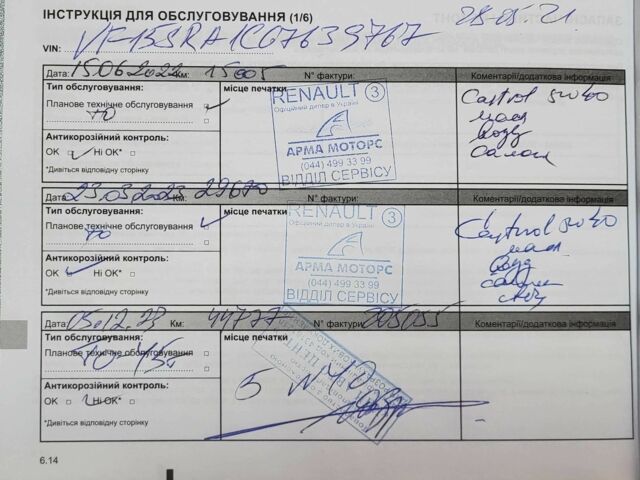 ІНСТРУКЦІЯ ДЛЯ ОБСЛУГОВУВАННЯ (1/6)
28.05.21
VIN: VF15SRA1C67639767
Дата: 15.06.2022 Км: 15005 N° фактури: Коментарі/додаткова інформація
Тип обслуговування:
місце печатки
Планове технічне обслуговування
ТО
Антикорозійний контроль:
OK Ні OK*
*Дивіться відповідну сторінку
RENAULT 3
Офіційний дилер в Україні
АРМА МОТОРС
(044) 499 33 99
ВІДДІЛ СЕРВІСУ
Castrol 5w40
масл
возд
салон
Дата: 23.03.2023 Км: 29670 N° фактури: Коментарі/додаткова інформація
Тип обслуговування:
місце печатки
Планове технічне обслуговування
ТО
Антикорозійний контроль:
OK Ні OK*
*Дивіться відповідну сторінку
RENAULT 3
Офіційний дилер в Україні
АРМА МОТОРС
(044) 499 33 99
ВІДДІЛ СЕРВІСУ
Castrol 5w40
масл
возд
салон
Дата: 05.12.23 Км: 44777 N° фактури: 285055 Коментарі/додаткова інформація
Тип обслуговування:
місце печатки
Планове технічне обслуговування
ТО-45
Антикорозійний контроль:
OK Ні OK*
*Дивіться відповідну сторінку
6.14